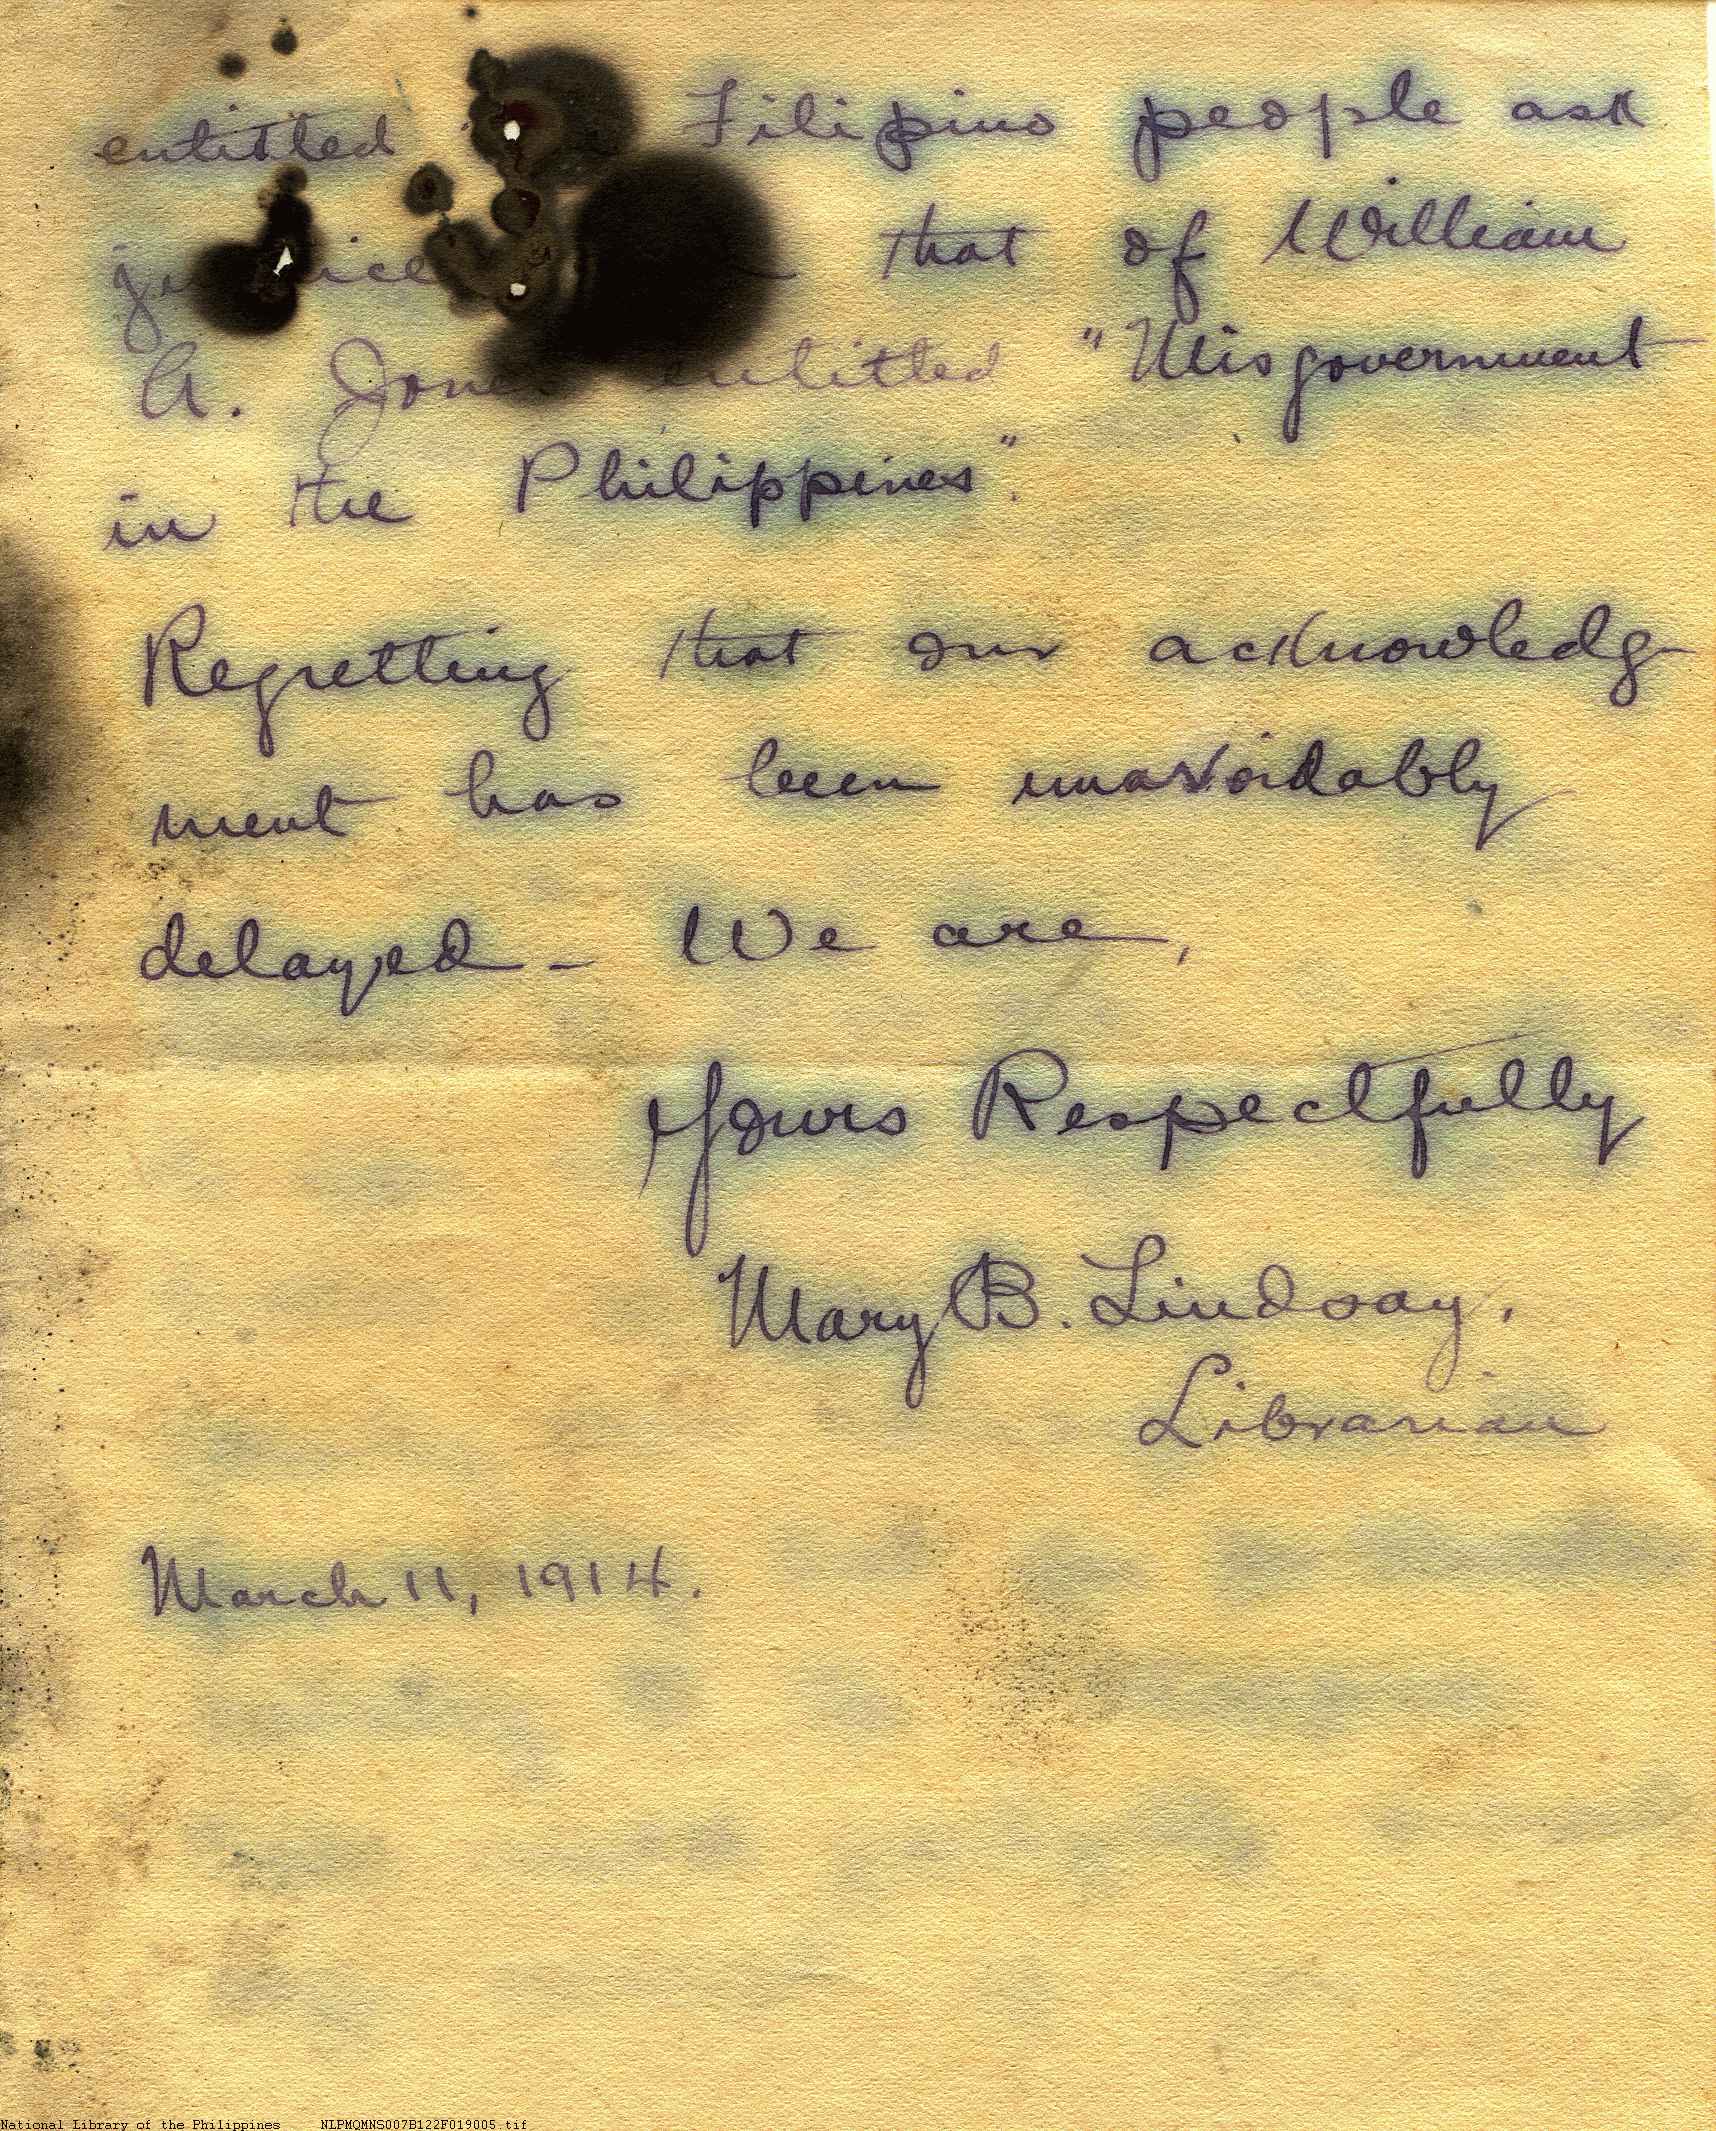 entitled Filipino people ask
justice that of William
A. Jones entitled "Misgovernment
in the Philippines".
Regretting that our acknowledg-
ment has been unavoidably
delayed - We are,
Yours Respectfully
Mary B. Lindsay.
Librarian
March 11, 1914.
National Library of the Philippines NLPMQMNS007B122F019005.tif